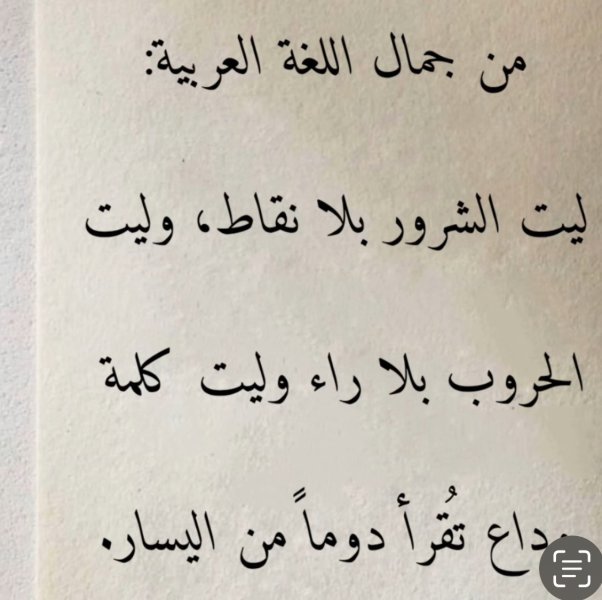 من جمال اللغة العربية:
ليت الشرور بلا نقاط، وليت
الحروب بلا راء وليت كلمة
وداع تُقرأ دوماً من اليسار.